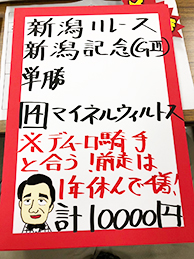 新潟11レース
新潟記念(GⅢ)
単勝
14 マイネルウィルトス
※デムーロ騎手
と合う!前走は
1年休んで4着!
計10000円